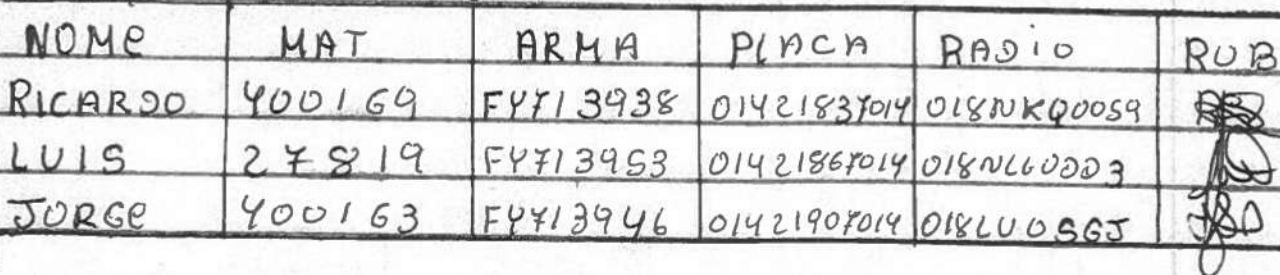 NOME MAT ARMA PLACA RADIO RUB
RICARDO 400169 FY713938 01421837014 018NKQ0059
LUIS 27819 FY713953 01421867014
JORGE 400163 FY713946 01421907014 018LU0SGJ